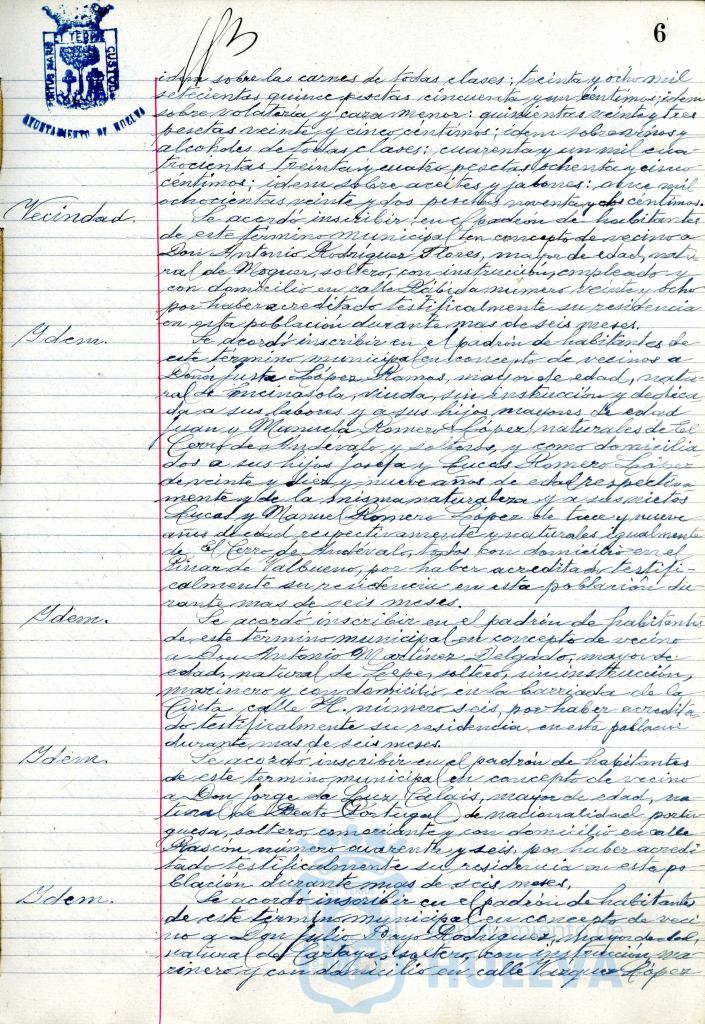 6
AYUNTAMIENTO DE HUELVA
idem sobre las carnes de todas clases: treinta y ocho mil
setecientas quince pesetas cincuenta y un céntimos; idem
sobre volateria y caza menor: quinientas veinte y tres
pesetas veinte y cinco céntimos; idem sobre vinos y
alcoholes de todas clases: cuarenta y un mil cua
trocientas treinta y cuatro pesetas ochenta y cinco
céntimos; idem sobre aceites y jabones: once mil
ochocientas veinte y dos pesetas noventa y dos céntimos.
Vecindad. Se acordó inscribir en el padrón de habitantes
de este término municipal en concepto de vecino a
Don Antonio Rodríguez Flores, mayor de edad, natu
ral de Moguer, soltero, con instrucción, empleado y
con domicilio en calle Rábida número veinte y ocho
por haber acreditado testificalmente su residencia
en esta población durante mas de seis meses.
Idem. Se acordó inscribir en el padrón de habitantes de
este término municipal en concepto de vecinos a
Doña Justa López Ramos, mayor de edad, natu
ral de Encinasola, viuda, sin instrucción y dedica
da a sus labores y a sus hijos mayores de edad
Juan y Manuela Romero López naturales de El
Cerro de Andévalo y solteros, y como domicilia
dos a sus hijos Josefa y Lucas Romero López
de veinte y diez y nueve años de edad respectiva
mente y de la misma naturaleza y a sus nietos
Lucas y Manuel Romero López de trece y nueve
años de edad respectivamente y naturales igualmente
de El Cerro de Andévalo, todos con domicilio en el
Pinar de Valbueno, por haber acreditado testifi-
calmente su residencia en esta población du
rante mas de seis meses.
Idem. Se acordó inscribir en el padrón de habitantes
de este término municipal en concepto de vecino
a Don Antonio Martínez Delgado, mayor de
edad, natural de Lepe, soltero, sin instrucción,
marinero y con domicilio en la barriada de la
Cinta calle H. número seis, por haber acredita
do testificalmente su residencia en esta poblacion
durante mas de seis meses.
Idem. Se acordó inscribir en el padrón de habitantes
de este término municipal en concepto de vecino
a Don Jorge da Luz Calais, mayor de edad, na
tural de Beato (Portugal) de nacionalidad portu
guesa, soltero, comerciante y con domicilio en calle
Rascon, número cuarenta y seis, por haber acredi
tado testificalmente su residencia en esta po-
blación durante mas de seis meses.
Idem. Se acordó inscribir en el padrón de habitantes
de este término municipal en concepto de veci
no a Don Julio Rodríguez, mayor de edad,
natural de Cartaya, soltero, con instrucción, ma
rinero y con domicilio en calle Vázquez López
Ayuntamiento de
HUELVA